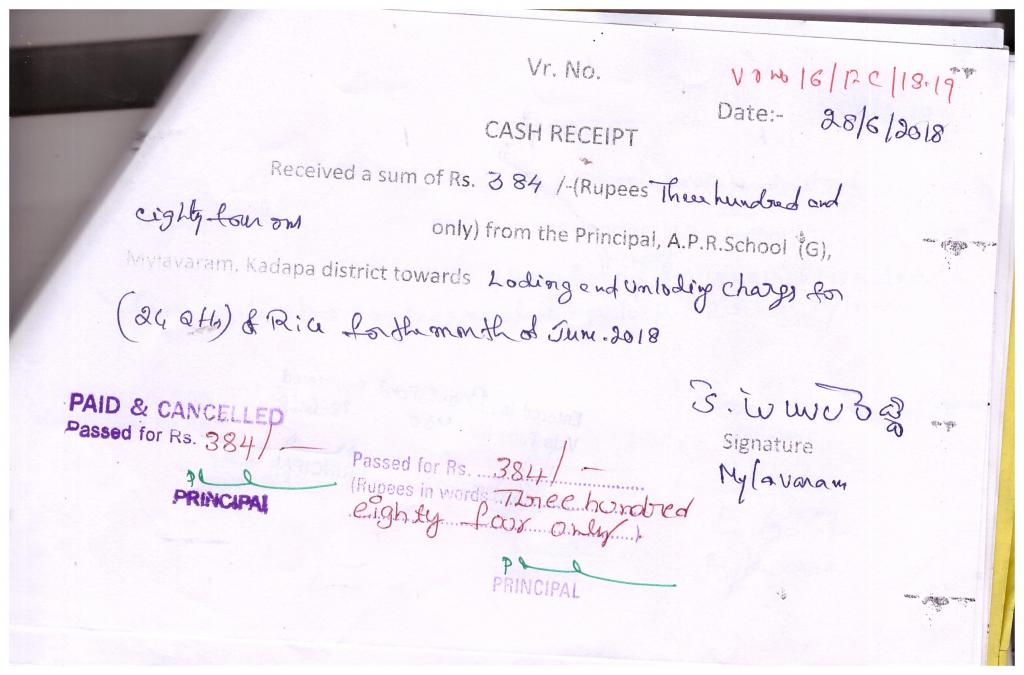 Vr. No.
V no 16/RC/18.19
Date:- 28/6/2018
CASH RECEIPT
Received a sum of Rs. 384 /-(Rupees Three hundred and
eighty four only) from the Principal, A.P.R.School (G),
Mylavaram, Kadapa district towards Loding and unloding charges for
(24 Qtls) of Rice for the month of June.2018
PAID & CANCELLED
Passed for Rs. 384/-
PRINCIPAL
Passed for Rs. 384/-
(Rupees in words Three hundred
eighty four only)
PRINCIPAL
Signature
Mylavaram